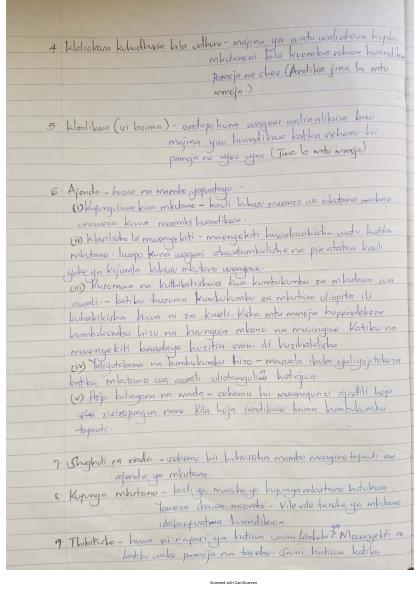 4 Waliokosa kuhudhuria bila udhuru - majina ya watu waliokosa kufika
mkutanoni bila kuomba ruhusa huandikwa
pamoja na cheo (Andika jina la mtu
mmoja.)
5 Waalikwa (si lazima) - endapo kuna wageni walioalikwa basi
majina yao huandikwa katika sehemu hii
pamoja na vyeo vyao (Jina la mtu mmoja)
6. Ajenda - huwa na mambo yafuatayo -
(i) Kufunguliwa kwa mkutano - kauli kuhusu mwanzo wa mkutano
unaweza kuwa maombi huandikwa.
(ii) Wasilisho la mwenyekiti - mwenyekiti huwakaribisha watu katika
mkutano. Iwapo kuna wageni atawatambulisha na pia atatoa kauli
yake ya kijumla kuhusu mkutano wenyewe.
(iii) Kusomwa na kuthibitishwa kwa kumbukumbu za mkutano wa
awali - katibu husoma kumbukumbu za mkutano uliopita ili
kuhakikisha kuwa ni za kweli. Kisha mtu mmoja hupendekeza
kumbukumbu hizo na kuungwa mkono na mwingine. Katibu na
mwenyekiti baadaye huzitia saini ili kuzihalalisha.
(iv) Yaliyotokana na kumbukumbu hizo - maswala ibuka yaliyojitokeza
katika mkutano wa awali uliotangulia hutajwa.
(v) Hoja kulingana na mada - sehemu hii mwanafunzi ajadili hoja
zisizopungua nane. Kila hoja iandikwe kama kumbukumbu
tofauti.
7. Shughuli za ziada - sehemu hii huhusisha mambo mengine tofauti na
ajenda ya mkutano.
8. Kufunga mkutano - kauli ya mwisho ya kufunga mkutano hutolewa.
Yaweza ikawa maombi. Vile vile tarehe ya mkutano
utakaofuatwa huandikwa
9 Thibitisho - huwa ni nafasi ya kutiwa saini Mwenyekiti na
katibu wake pamoja na tarehe. Saini hutiwa katika
Scanned with CamScanner